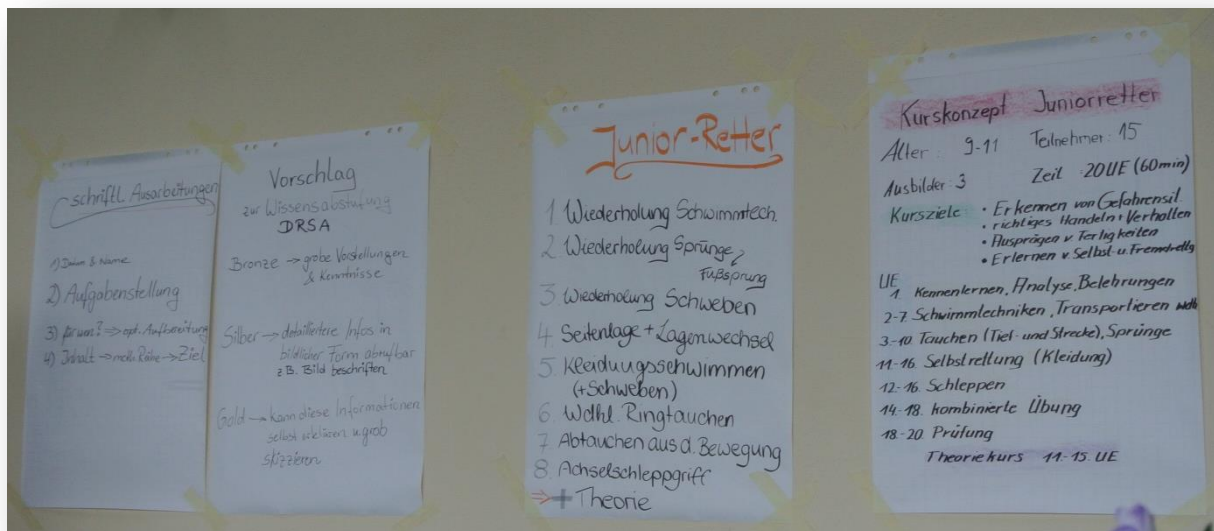 schriftl. Ausarbeitungen
1) Datum & Name
2) Aufgabenstellung
3) für wen? ⇒ opt. Aufbereitung
4) Inhalt → meth. Reihe → Ziel
Vorschlag
zur Wissensabstufung
DRSA
Bronze → grobe Vorstellungen
& Kenntnisse
Silber → detailliertere Infos in
bildlicher Form abrufbar
z.B. Bild beschriften
Gold → kann diese Informationen
selbst erklären u. grob
skizzieren
Junior-Retter
1. Wiederholung Schwimmtech.
2. Wiederholung Sprünge
Fußsprung
3. Wiederholung Schweben
4. Seitenlage + Lagenwechsel
5. Kleidungsschwimmen
(+Schweben)
6. Wdhl. Ringtauchen
7. Abtauchen aus d. Bewegung
8. Achselschleppgriff
⇒ + Theorie
Kurskonzept Juniorretter
Alter: 9-11 Teilnehmer: 15
Ausbilder: 3 Zeit: 20 UE (60min)
Kursziele • Erkennen von Gefahrensit.
• richtiges Handeln + Verhalten
• Ausprägen v. Fertigkeiten
• Erlernen v. Selbst- u. Fremdrettg
UE
1. Kennenlernen, Analyse, Belehrungen
2-7. Schwimmtechniken, Transportieren wdh.
3.-10 Tauchen (Tief- und Strecke), Sprünge
11-16. Selbstrettung (Kleidung)
12-16. Schleppen
14-18. kombinierte Übung
18-20 Prüfung
Theoriekurs 11-15. UE